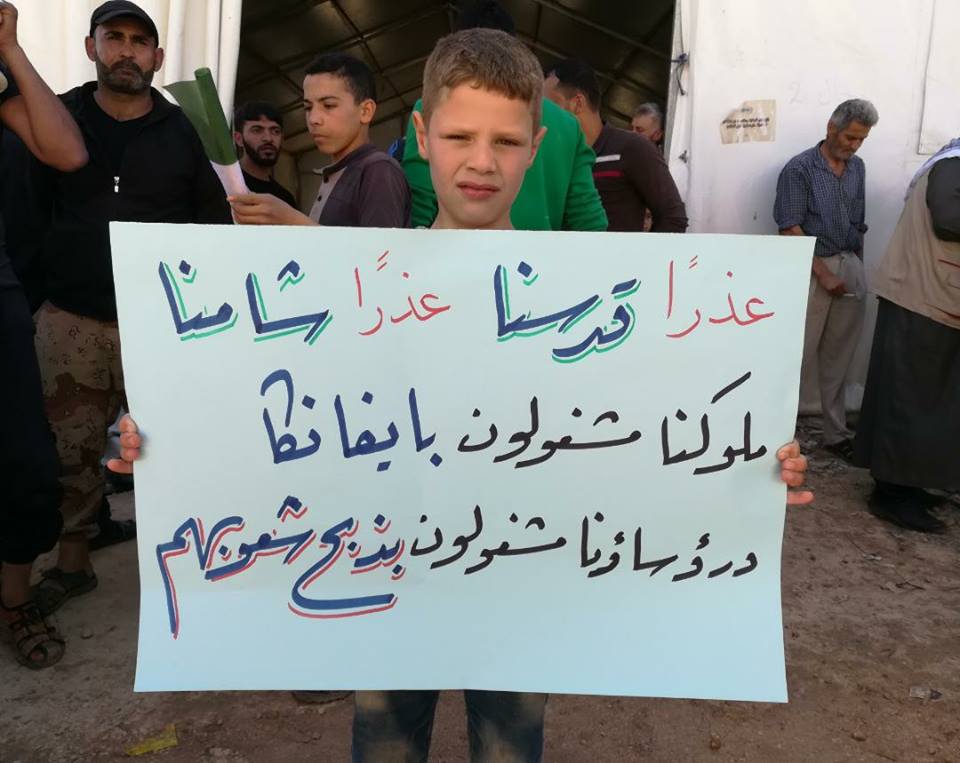 عذرًا قدسنا عذرًا شامنا
ملوكنا مشغولون بايفانكا
ورؤساؤنا مشغولون بذبح شعوبهم